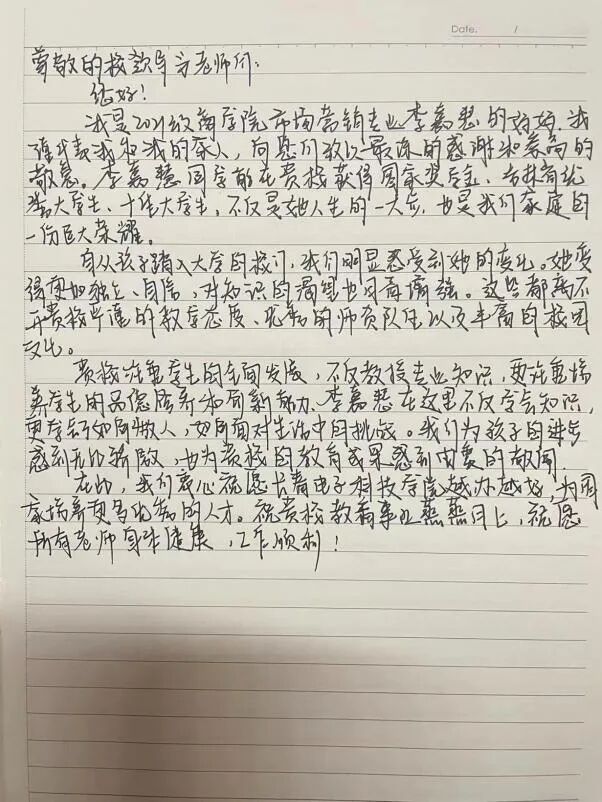 Date. /
尊敬的校领导与老师们:
您好!
我是2021级商学院市场营销专业李嘉慧的妈妈,我
谨代表我和我的家人,向您们致以最深的感谢和崇高的
敬意。李嘉慧同学能在贵校获得国家奖学金、吉林省优
秀大学生、十佳大学生,不仅是她人生的一大步,也是我们家庭的
一份巨大荣耀。
自从孩子踏入大学的校门,我们明显感受到她的变化。她变
得更加独立、自信,对知识的渴望也日再增强。这些都离不
开贵校严谨的教学态度、优秀的师资队伍以及丰富的校园
文化。
贵校注重学生的全面发展,不仅教授专业知识,更注重培
养学生的品德修养和创新能力。李嘉慧在这里不仅学会知识,
更学会了如何做人,如何面对生活中的挑战。我们为孩子的进步
感到无比骄傲,也为贵校的教育成果感到由衷的敬佩。
在此,我们衷心祝愿长春电子科技学院越办越好,为国
家培养更多优秀的人才。祝贵校教育事业蒸蒸日上,祝愿
所有老师身体健康,工作顺利!